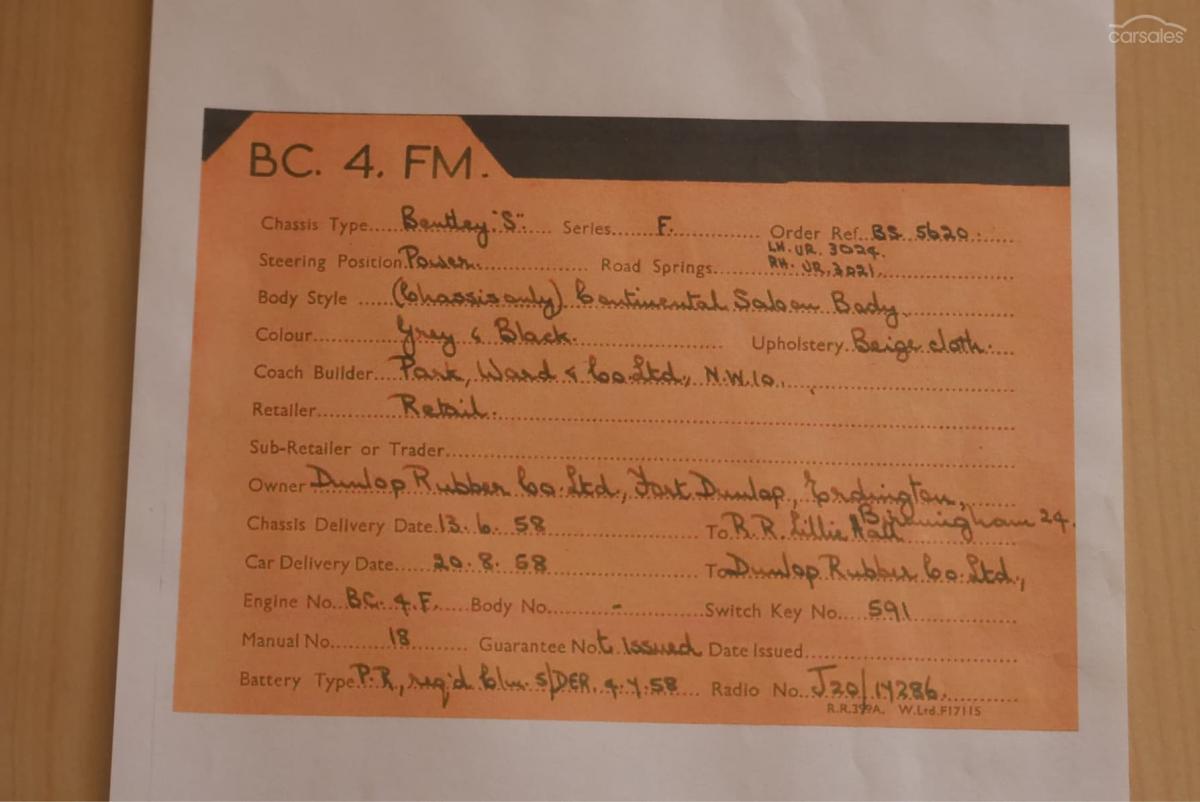 carsales
BC. 4. FM.
Chassis Type Bentley "S". Series F. Order Ref. BS 5620.
LH. UR. 3024.
Steering Position Power. Road Springs RH. UR. 3021.
Body Style (Chassis only) Continental Saloon Body.
Colour Grey & Black. Upholstery Beige cloth.
Coach Builder Park, Ward & Co. Ltd., N.W.10.
Retailer Retail.
Sub-Retailer or Trader
Owner Dunlop Rubber Co. Ltd., Fort Dunlop, Erdington,
Birmingham 24.
Chassis Delivery Date 13. 6. 58 To R.R. Lillie Hall
Car Delivery Date 20. 8. 58 To Dunlop Rubber Co. Ltd.,
Engine No. BC. 4. F. Body No. - Switch Key No. 591
Manual No. 18 Guarantee Not Issued Date Issued
Battery Type P.R., req'd S/DER. 58 Radio No. J20/14286.
R.R.399A. W.Ltd.F17115